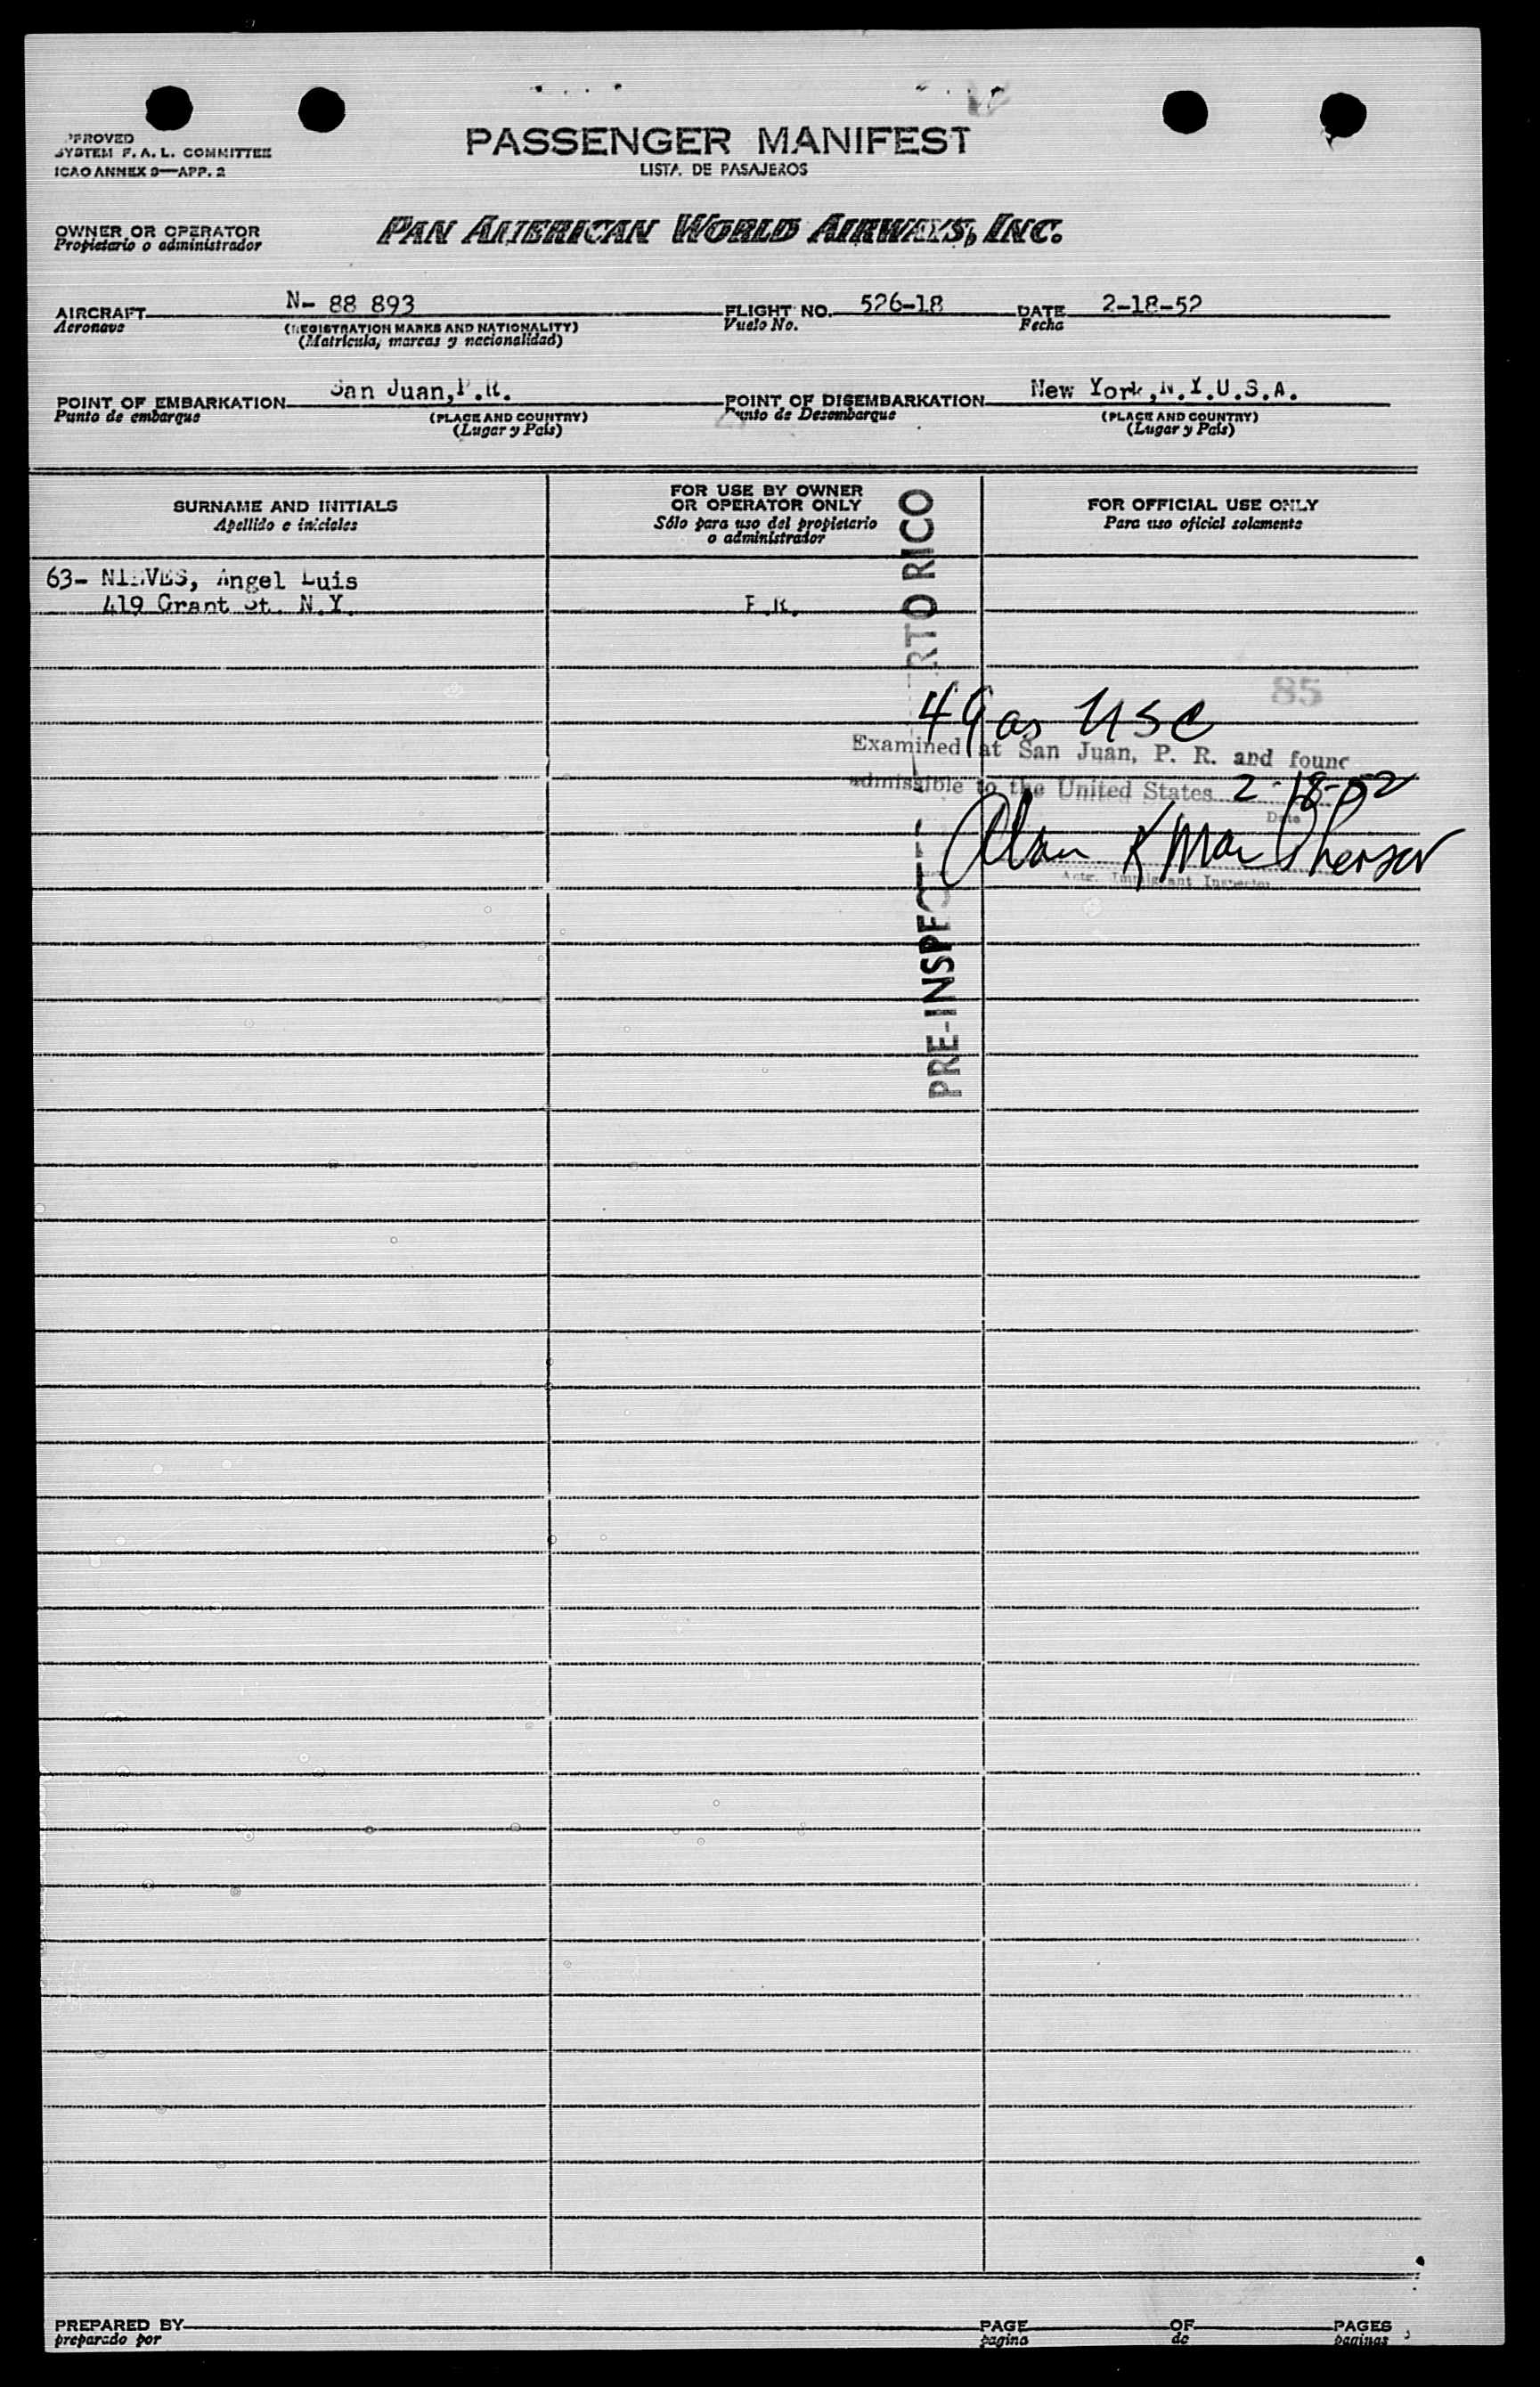 PROVED
SYSTEM F. A. L. COMMITTEE
ICAO ANNEX 9—APP. 2
PASSENGER MANIFEST
LISTA DE PASAJEROS
OWNER OR OPERATOR
Propietario o administrador
PAN AMERICAN WORLD AIRWAYS, INC.
AIRCRAFT N- 88 893 FLIGHT NO. 526-18 DATE 2-18-52
Aeronave (REGISTRATION MARKS AND NATIONALITY) Vuelo No. Fecha
(Matricula, marcas y nacionalidad)
POINT OF EMBARKATION San Juan, P.R. POINT OF DISEMBARKATION New York, N.Y.U.S.A.
Punto de embarque (PLACE AND COUNTRY) Punto de Desembarque (PLACE AND COUNTRY)
(Lugar y País) (Lugar y País)
SURNAME AND INITIALS
Apellido e iniciales
FOR USE BY OWNER
OR OPERATOR ONLY
Sólo para uso del propietario
o administrador
FOR OFFICIAL USE ONLY
Para uso oficial solamente
63- NIEVES, Angel Luis
419 Grant St. N.Y. P.R.
RTO RICO
85
49 as USC
Examined at San Juan, P. R. and found
admissible to the United States 2-18-52
Date
Alan K MacPherson
Actg. Immigrant Inspector
PRE-INSPECTE
PREPARED BY PAGE OF PAGES
preparado por pagina de paginas